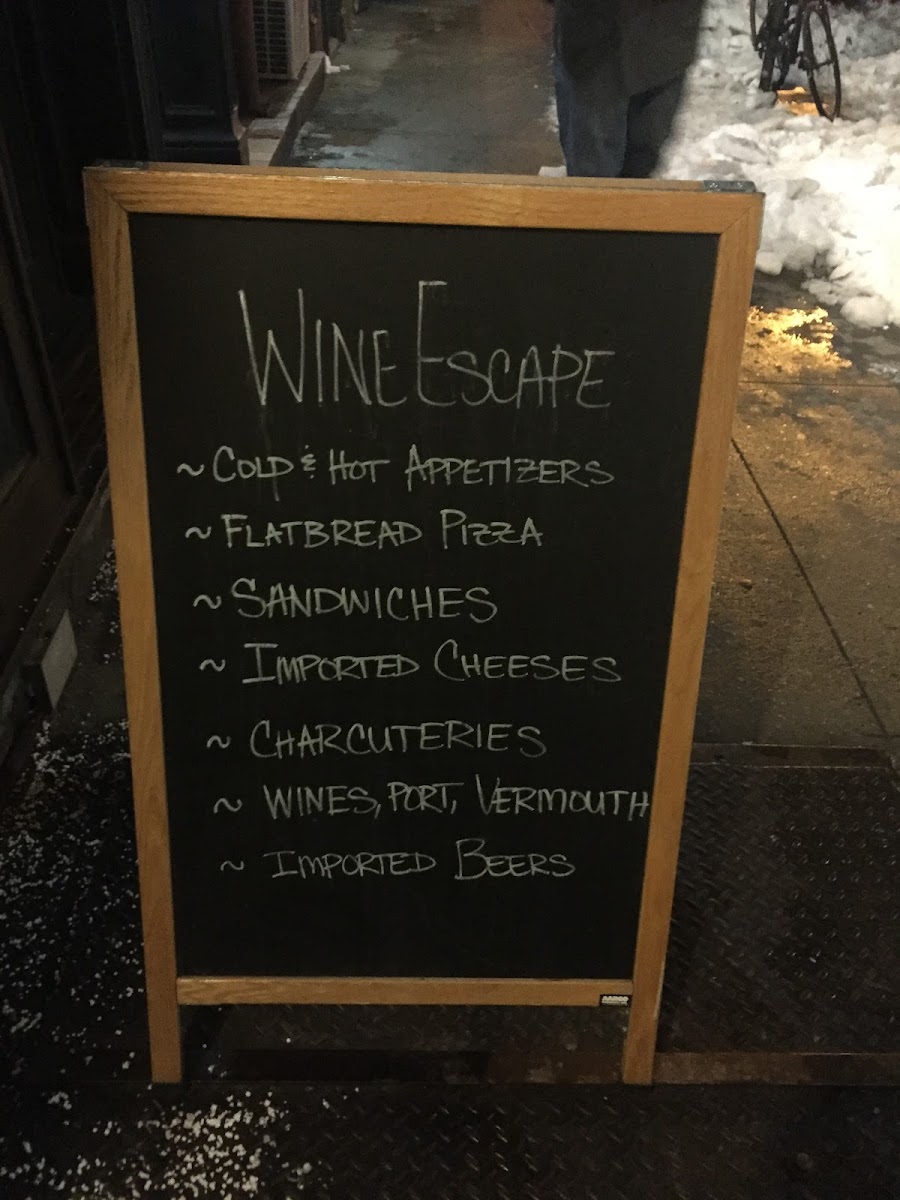 WINE ESCAPE
~ COLD & HOT APPETIZERS
~ FLATBREAD PIZZA
~ SANDWICHES
~ IMPORTED CHEESES
~ CHARCUTERIES
~ WINES, PORT, VERMOUTH
~ IMPORTED BEERS
AARCO